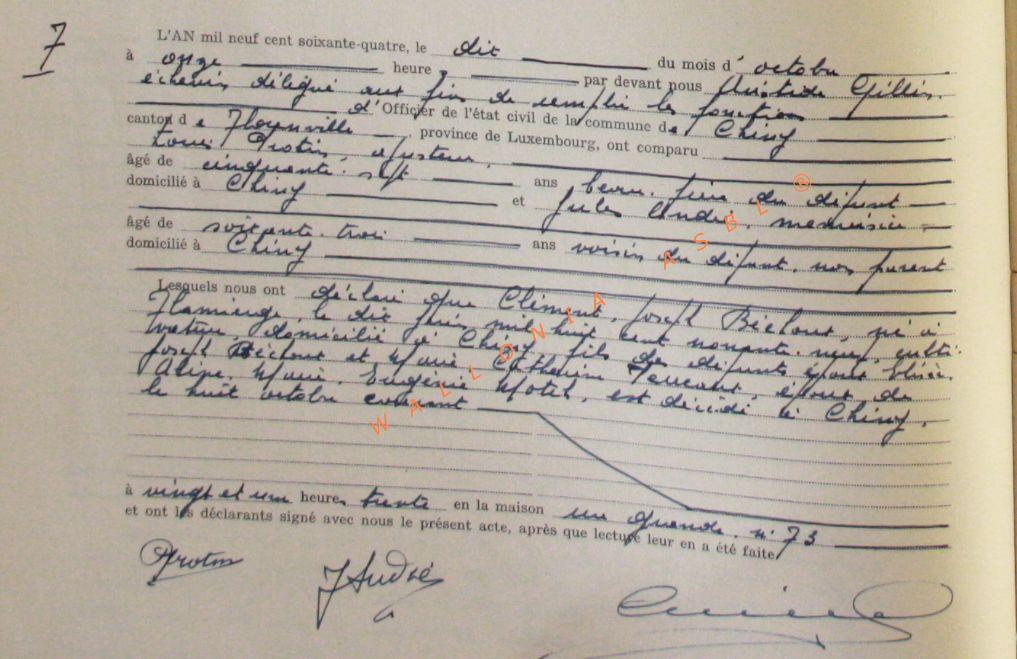 7
L'AN mil neuf cent soixante-quatre, le dix du mois d'octobre
à onze heure, par devant nous Aristide Gillis,
échevin délégué aux fins de remplir les fonctions
d'Officier de l'état civil de la commune de Chiny
canton de Florenville, province de Luxembourg, ont comparu
Louis Protin, ajusteur,
âgé de cinquante-sept ans beau-frère du défunt
domicilié à Chiny et Jules André, menuisier
âgé de soixante-trois ans voisin du défunt, non parent
domicilié à Chiny
Lesquels nous ont déclaré que Clément, Joseph Béchoux, né à
Flamierge, le dix juin mil huit cent nonante-neuf, culti-
vateur, domicilié à Chiny, fils des défunts époux Elisée,
Joseph Béchoux et Marie, Catherine, époux de
Marie, Eugénie Motet, est décédé à Chiny,
le huit octobre courant
à vingt et une heures trente en la maison rue Grande, n° 73
et ont les déclarants signé avec nous le présent acte, après que lecture leur en a été faite
Protin
J André
WALLONIA ASBL ®